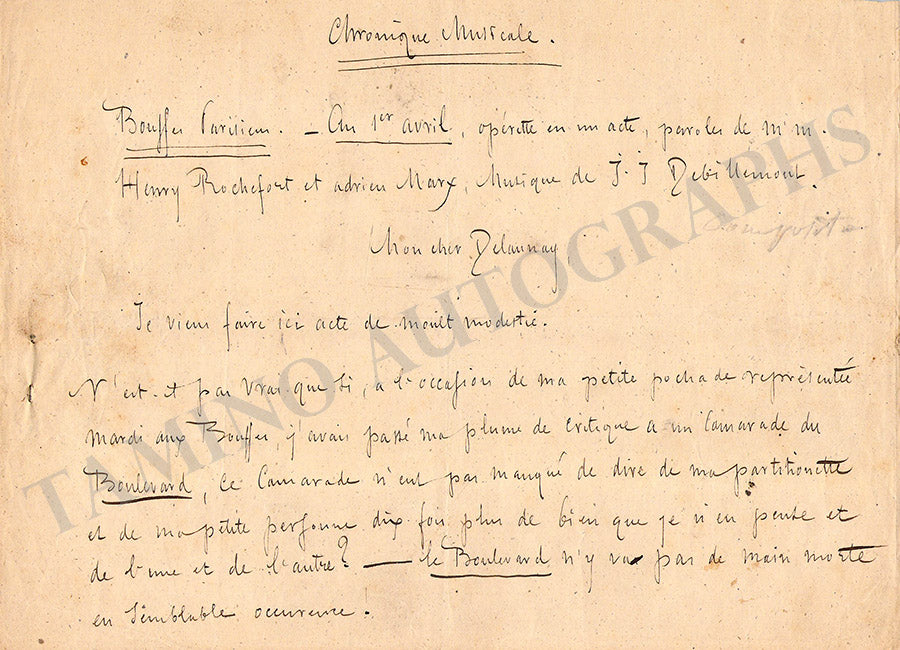 Chronique Musicale.
Bouffes Parisiens. — Au 1er avril, opérette en un acte, paroles de m.m.
Henry Rochefort et adrien Marx, Musique de J. J Debillemont.
Mon cher Delaunay,
Je viens faire ici acte de moult modestie.
N'est-il pas vrai que si, a l'occasion de ma petite pochade représentée
mardi aux Bouffes, j'avais passé ma plume de critique a un Camarade du
Boulevard, ce Camarade n'eut pas manqué de dire de ma partitionette
et de ma petite personne dix fois plus de bien que je n'en pense et
de l'une et de l'autre? — le Boulevard n'y va pas de main morte
en semblable occurence!
TAMINO AUTOGRAPHS